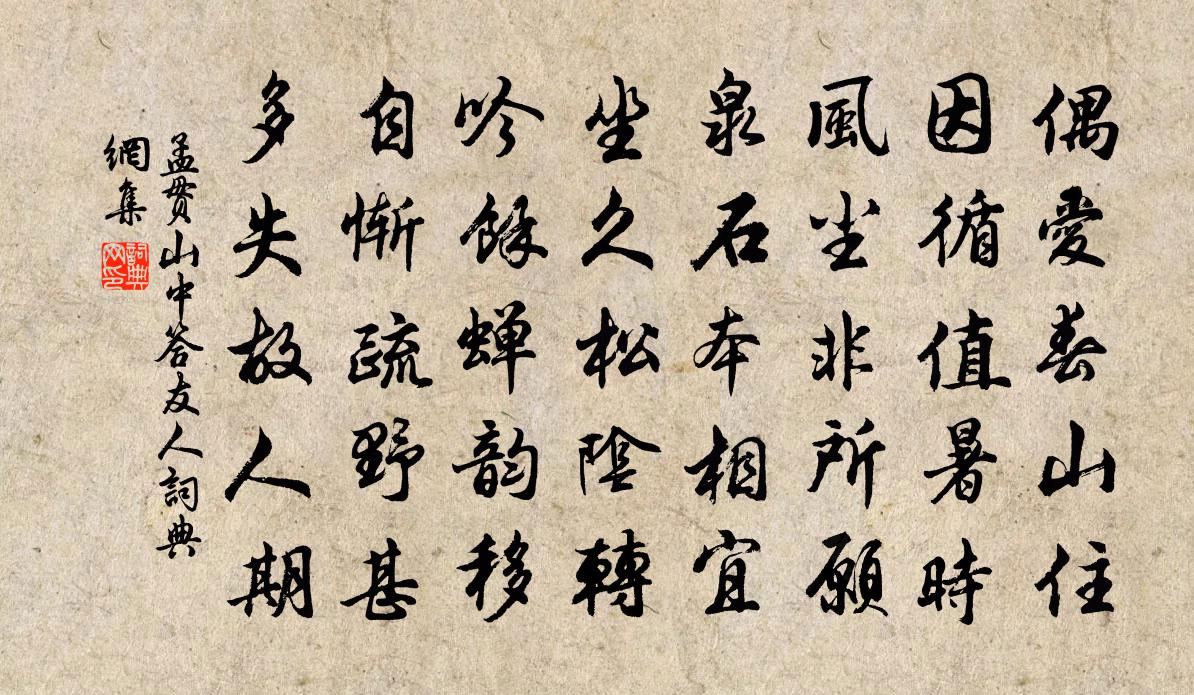 偶愛春山住
因循值暑時
風塵非所願
泉石本相宜
坐久松陰轉
吟餘蟬韵移
自慚疏野甚
多失故人期
孟貫山中答友人詞典
網集
詞典
网印